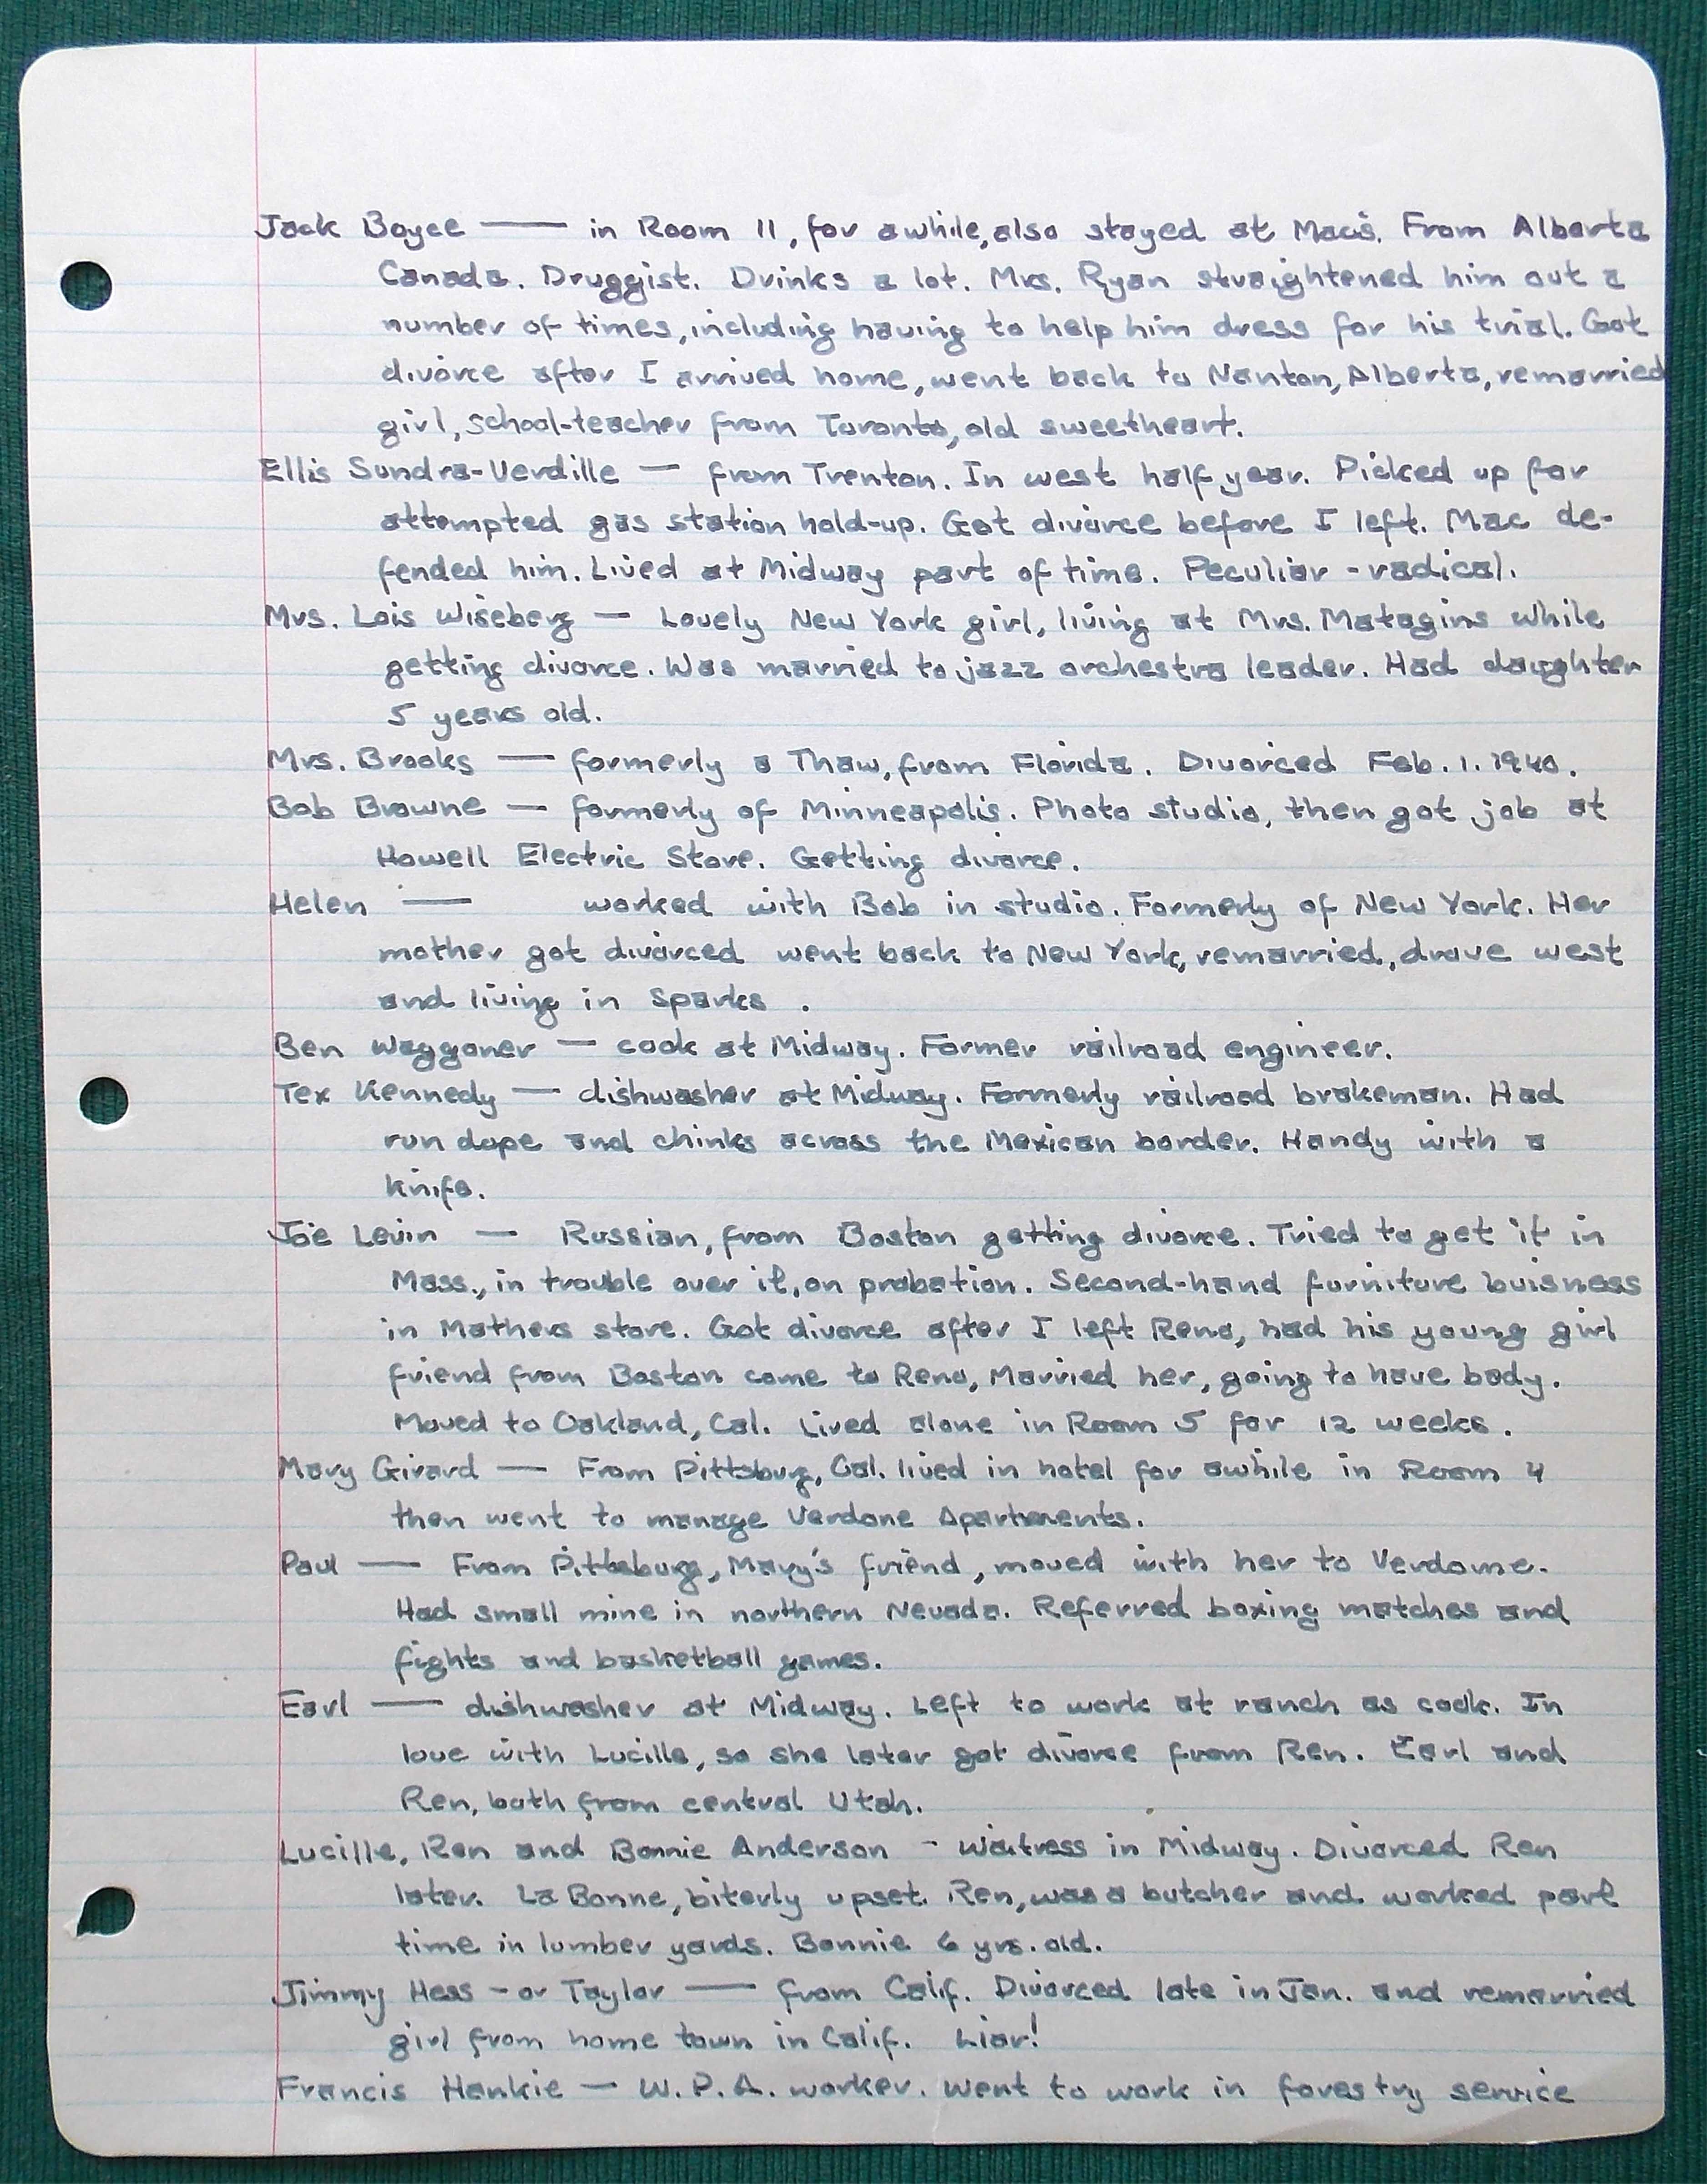 Jack Boyce — in Room 11, for awhile, also stayed at Mac's. From Alberta
Canada. Druggist. Drinks a lot. Mrs. Ryan straightened him out a
number of times, including having to help him dress for his trial. Got
divorce after I arrived home, went back to Nanton, Alberta, remarried
girl, school-teacher from Toronto, old sweetheart.
Ellis Sundra-Verdille — from Trenton. In west half year. Picked up for
attempted gas station hold-up. Got divorce before I left. Mac de-
fended him. Lived at Midway part of time. Peculiar - radical.
Mrs. Lois Wiseberg — Lovely New York girl, living at Mrs. Matagins while
getting divorce. Was married to jazz orchestra leader. Had daughter
5 years old.
Mrs. Brooks — formerly a Thaw, from Florida. Divorced Feb. 1. 1940.
Bob Browne — formerly of Minneapolis. Photo studio, then got job at
Howell Electric Store. Getting divorce.
Helen — worked with Bob in studio. Formerly of New York. Her
mother got divorced went back to New York, remarried, drove west
and living in Sparks .
Ben Waggoner — cook at Midway. Former railroad engineer.
Tex Kennedy — dishwasher at Midway. Formerly railroad brakeman. Had
run dope and chinks across the Mexican border. Handy with a
knife.
Joe Levin — Russian, from Boston getting divorce. Tried to get it in
Mass., in trouble over it, on probation. Second-hand furniture buisness
in Mathers store. Got divorce after I left Reno, had his young girl
friend from Boston come to Reno, Married her, going to have baby.
Moved to Oakland, Cal. Lived alone in Room 5 for 12 weeks.
Mary Girard — From Pittsburg, Cal. lived in hotel for awhile in Room 4
then went to manage Verdone Apartments.
Paul — From Pittsburg, Mary's friend, moved with her to Verdome.
Had small mine in northern Nevada. Referred boxing matches and
fights and basketball games.
Earl — dishwasher at Midway. Left to work at ranch as cook. In
love with Lucille, so she later got divorce from Ren. Earl and
Ren, both from central Utah.
Lucille, Ren and Bonnie Anderson - Waitress in Midway. Divorced Ren
later. La Bonne, biterly upset. Ren, was a butcher and worked part
time in lumber yards. Bonnie 6 yrs. old.
Jimmy Hess - or Taylor — from Calif. Divorced late in Jan. and remarried
girl from home town in Calif. Liar!
Francis Hankie — W.P.A. worker. Went to work in forestry service